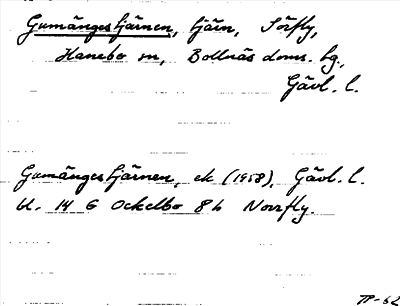 Gumängestjärnen, tjärn, Sörfly,
Hanebo sn, Bollnäs doms. hg.,
Gävl. l.
Gumängestjärnen, ek (1958), Gävl. l.
bl. 14 G Ockelbo 8 h Norrfly.